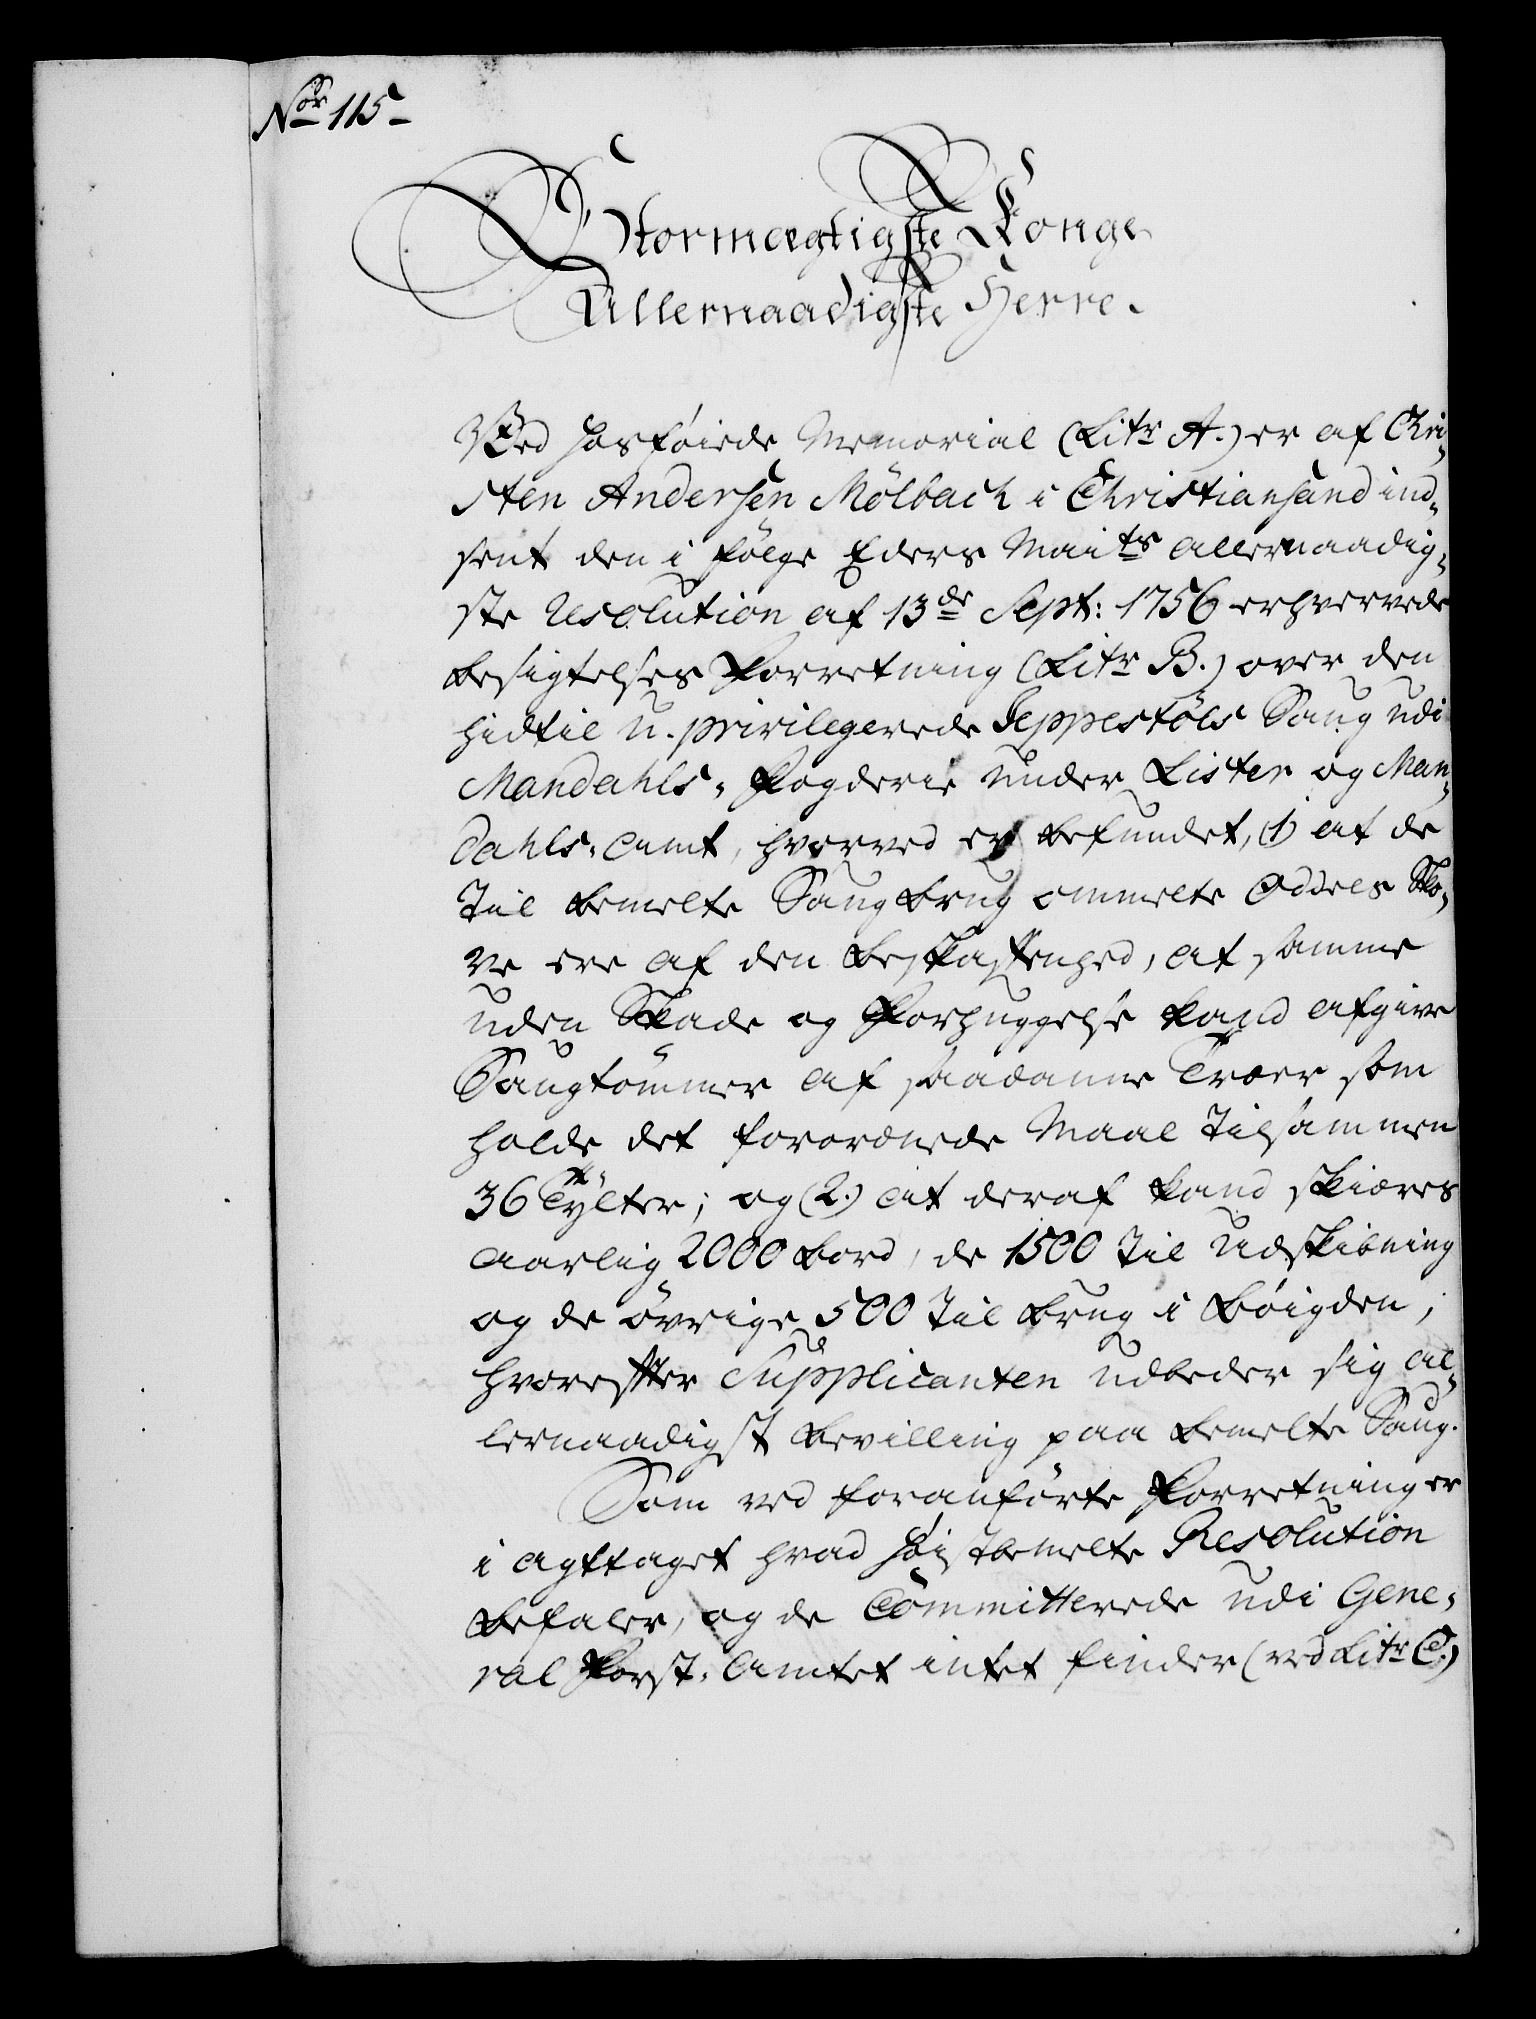 Nor 115
Stormægtigste Konge
Allernaadigste Herre.
Ved hosføiede Memorial (Litr A.) er af Chri-
sten Andersen Mölbach i Christiansand ind-
sent den i følge Eders Maits allernaadig-
ste Resolution af 13de Sept: 1756 erhvervede
Besigtelses Forretning (Litr B.) over den
hidtil u-privilegerede Jeppestöls Saug udi
Mandahls-Fogderie under Lister og Man-
dahls-amt, hvorved er befundet, 1) at de
til bemelte Saugbrug ommelte Odels Sko-
ve ere af den Beskaffenhed, at samme
uden Skade og Forhuggelse kand afgive
Saugtömmer af saadanne Træer som
holde det forordnede Maal tilsammen
36 Tylter; og (2.) at deraf kand skiæres
aarlig 2000 bord, de 1500 til Udskibning
og de övrige 500 til brug i Böigden;
hvorefter Supplicanten udbeder sig al-
lernaadigst Bevilling paa bemelte Saug.
Som ved foranförte Forretning er
i agttaget hvad höistbemelte Resolution
befaler, og de Committerede udi Gene-
ral Forst-Amtet intet finder (ved Litr C.)